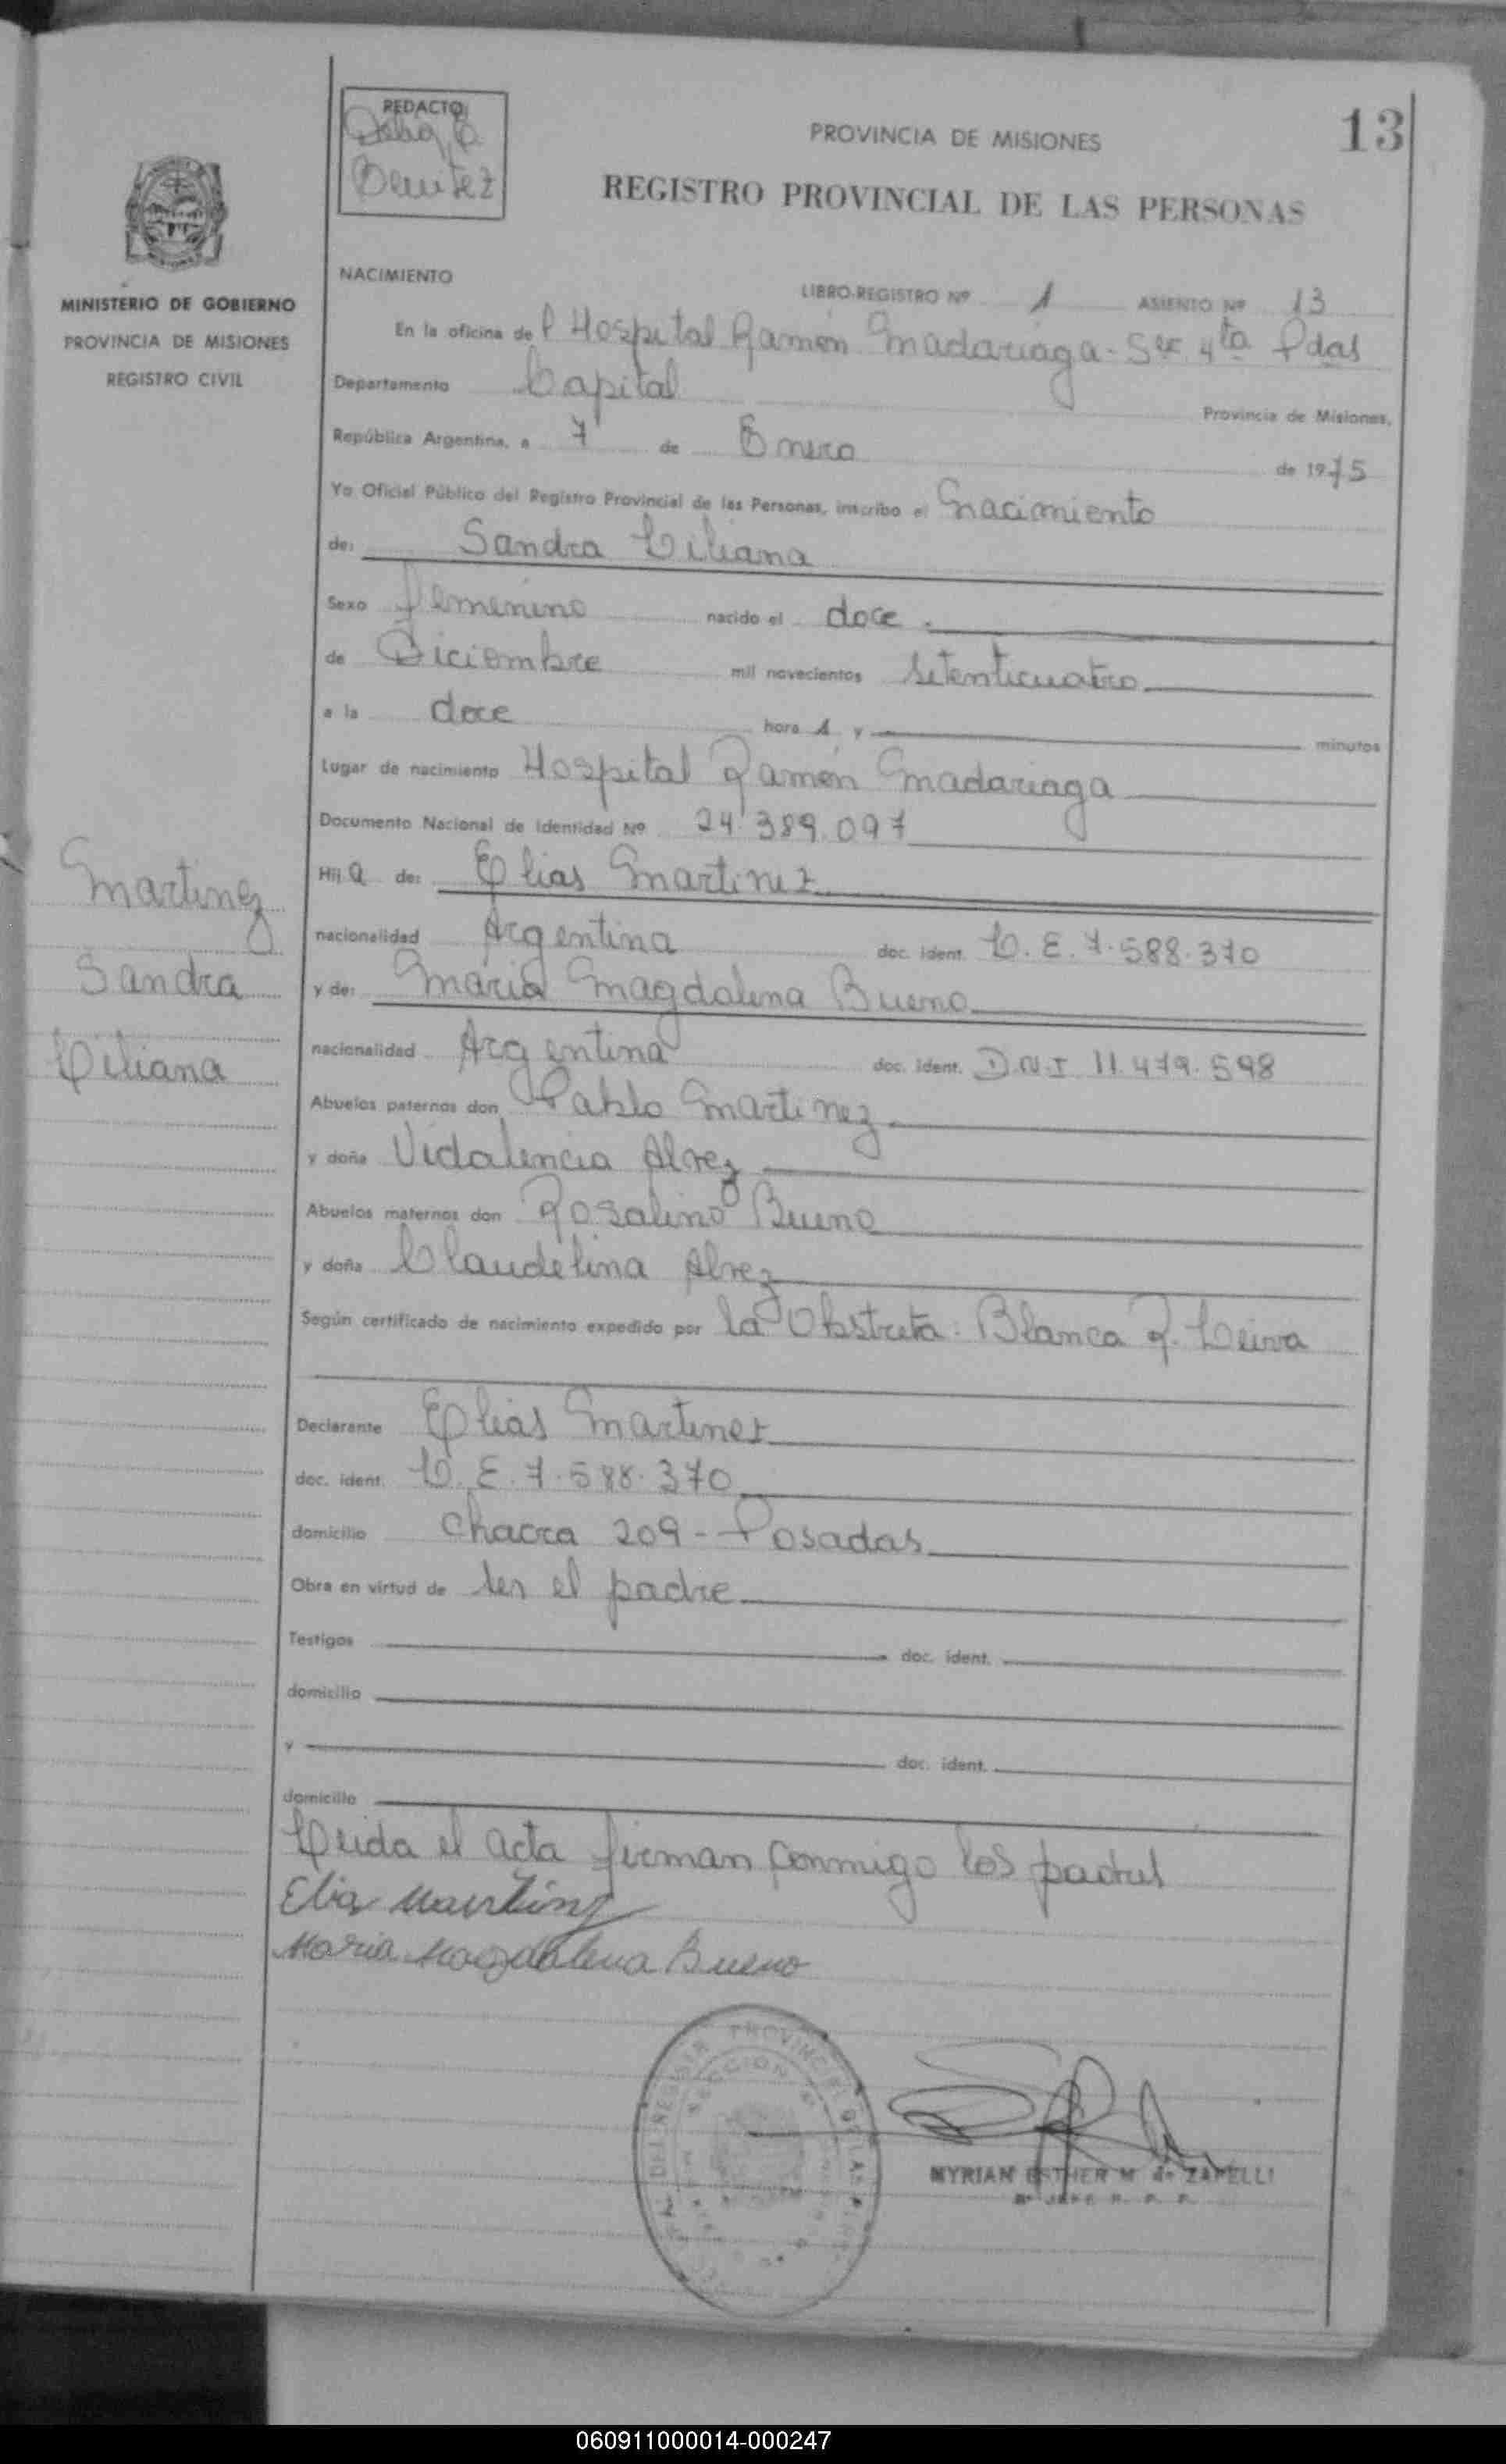 REDACTO
Benitez
PROVINCIA DE MISIONES
13
REGISTRO PROVINCIAL DE LAS PERSONAS
MINISTERIO DE GOBIERNO
PROVINCIA DE MISIONES
REGISTRO CIVIL
NACIMIENTO
LIBRO-REGISTRO Nº 1 ASIENTO Nº 13
En la oficina del Hospital Ramón Madariaga - Sec 4ta Pdas
Departamento Capital Provincia de Misiones,
República Argentina, a 7 de Enero de 1975
Yo Oficial Público del Registro Provincial de las Personas, inscribo el Nacimiento
de: Sandra Liliana
Sexo Femenino nacido el doce
de Diciembre mil novecientos setenticuatro
a la doce hora s y minutos
Lugar de nacimiento Hospital Ramón Madariaga
Documento Nacional de Identidad Nº 24.389.097
Hij a de: Elias Martinez
nacionalidad Argentina doc. ident. L.E. 7.588.370
y de: Maria Magdalena Bueno
nacionalidad Argentina doc. ident. D.N.I 11.479.598
Abuelos paternos don Pablo Martinez
y doña Vidalencia Alvez
Abuelos maternos don Rosalino Bueno
y doña Claudelina Alvez
Según certificado de nacimiento expedido por la Obstreta. Blanca R. Leiva
Declarante Elias Martinez
doc. ident. L.E. 7.588.370
domicilio Chacra 209 - Posadas
Obra en virtud de ser el padre
Testigos doc. ident.
domicilio
y doc. ident.
domicilio
Leida el acta firman conmigo los padres
Elias Martinez
Maria Magdalena Bueno
Martinez
Sandra
Liliana
PROVINCIAL DE LAS
SECCION
MYRIAN ESTHER M de ZAPELLI
060911000014-000247